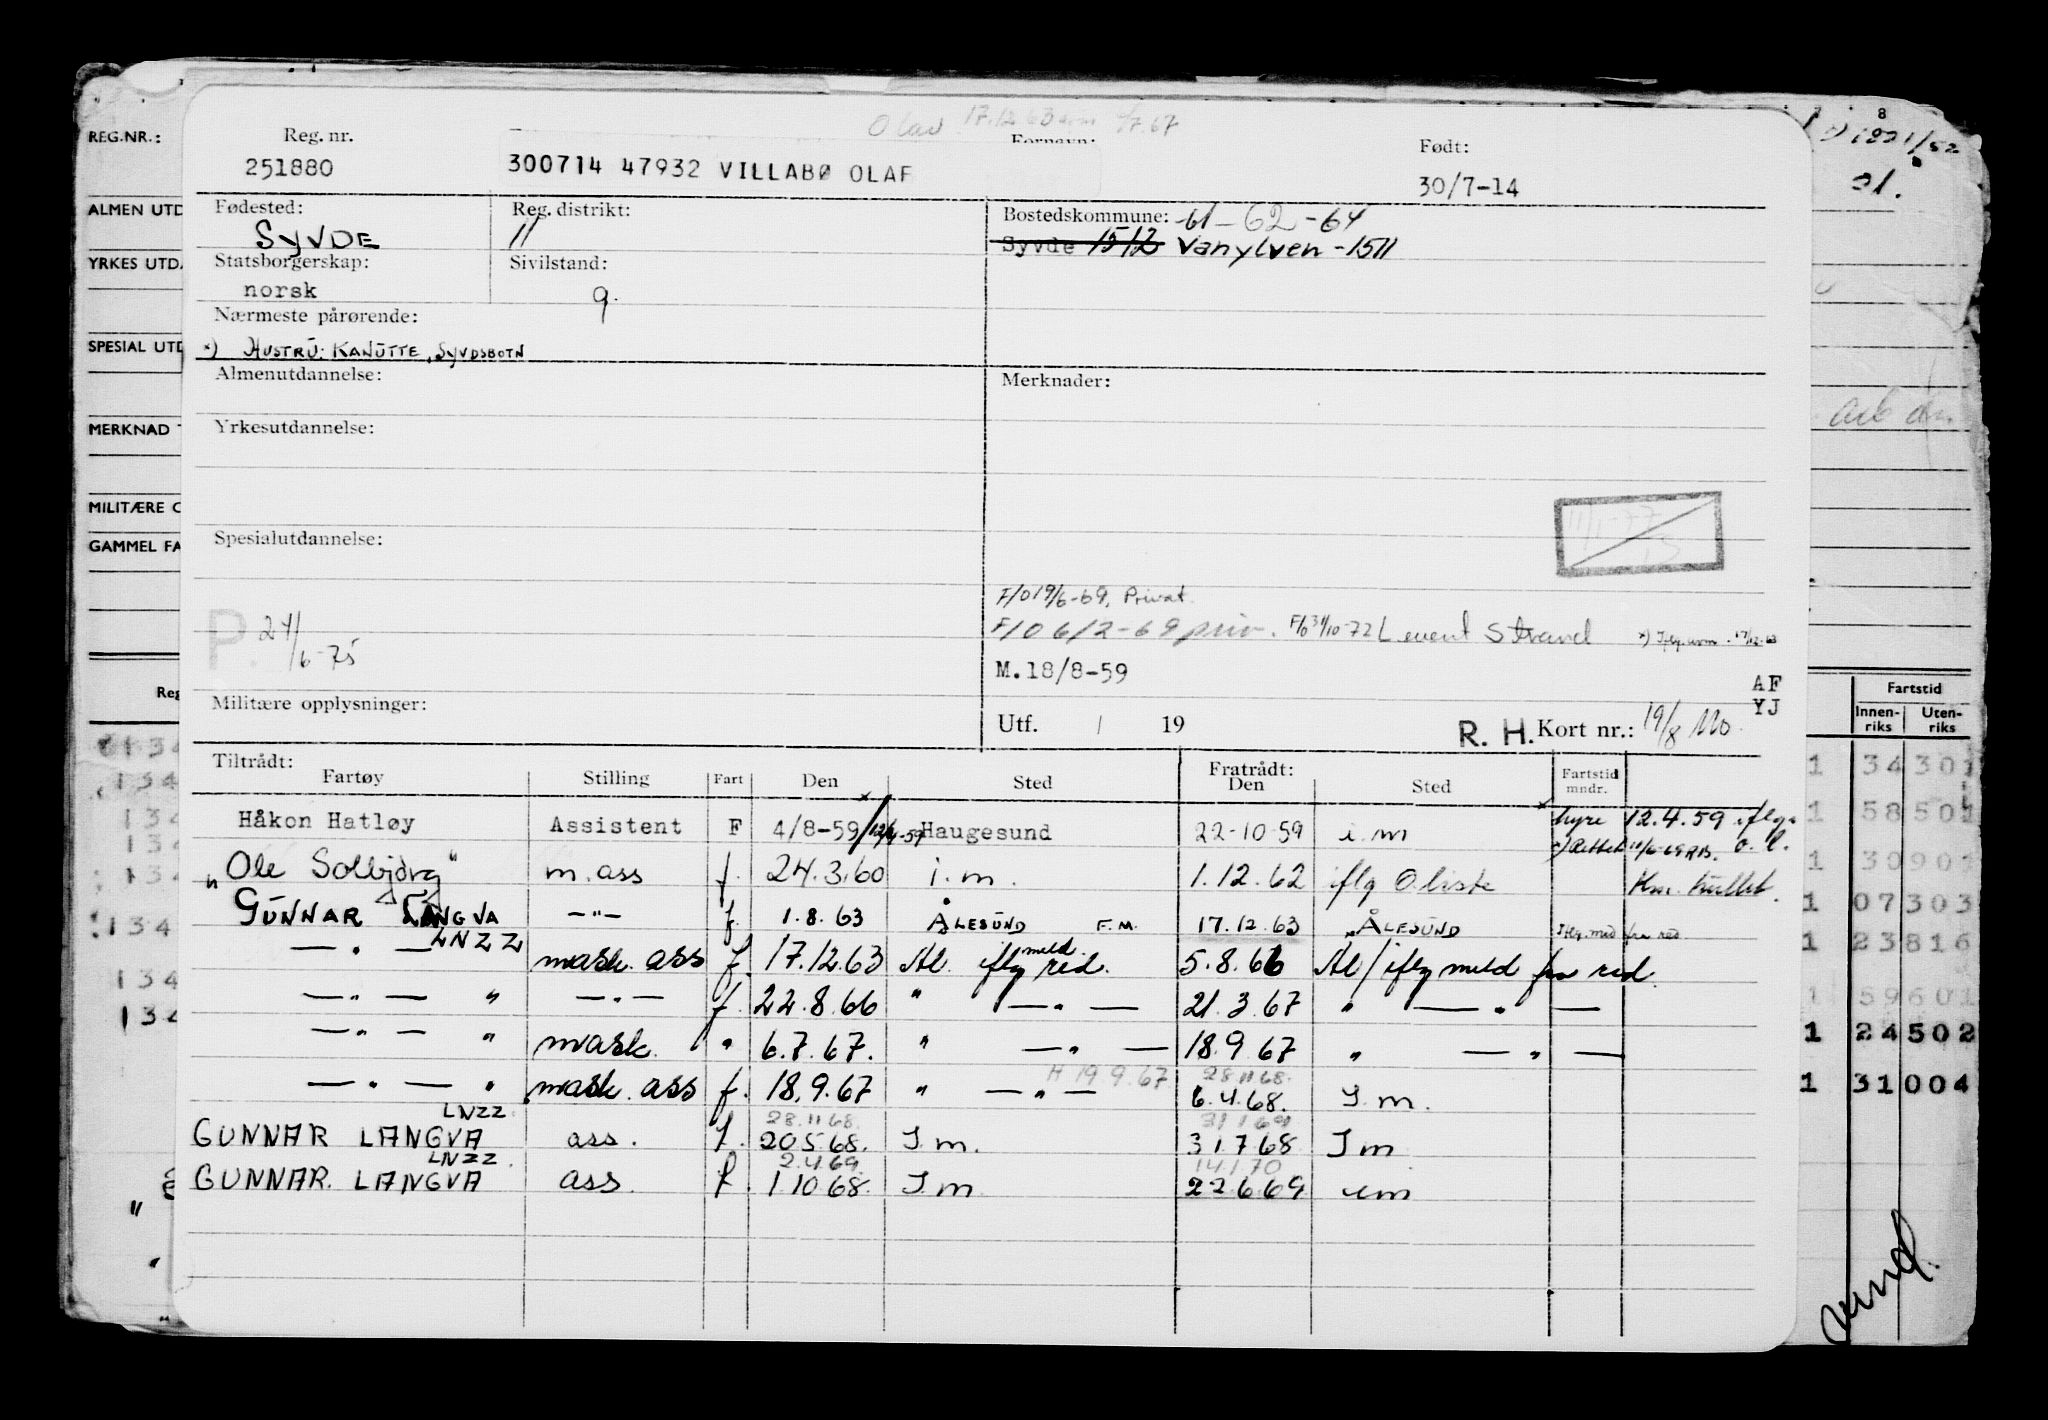 Olav 17.12.63
REG.NR.:
Reg. nr.
Fornavn:
Født:
8
1221/52
251880
300714 47932 VILLABØ OLAF
30/7-14
21.
ALMEN UTD
Fødested:
Reg. distrikt:
Bostedskommune: -61-62-64
SYVDE
11
Syvde 1512 Vanylven-1511
YRKES UTD.
Statsborgerskap:
Sivilstand:
norsk
g.
Nærmeste pårørende:
SPESIAL UTD
x) HUSTRU: KANUTTE, SYVDSBOTN
Almenutdannelse:
Merknader:
MERKNAD T
Yrkesutdannelse:
MILITÆRE O
11/1-77
GAMMEL FA
Spesialutdannelse:
F/O 19/6-69, Privat.
P. 24/6-75
F/O 6/2-69 priv. F/O 31/10-72 Levent Strand
M.18/8-59
AF
YJ
Reg
Fartstid
Militære opplysninger:
Utf. / 19
R. H. Kort nr.: 19/8 Mo.
Innen-riks
Uten-riks
Tiltrådt:
Fratrådt:
Fartøy Stilling Fart Den Sted Den Sted Fartstid mndr.
Håkon Hatløy Assistent F 4/8-59/12/4-59 Haugesund 22-10-59 i.m hyre 12.4.59 iflg. o.l.
x) Rettet 11/6-69
"Ole Solbjørg" m.ass f. 24.3.60 i.m. 1.12.62 iflg O.liste
GUNNAR LANGVA —"— f. 1.8.63 ÅLESUND F.M. 17.12.63 ÅLESUND Iflg. med fra red
— " — LNZZ mask. ass f. 17.12.63 Ål. iflg meld red. 5.8.66 Ål/iflg meld fra red.
— " — " — " — f. 22.8.66 " — " — 21.3.67 " — " —
— " — " mask. " 6.7.67. " — " — 18.9.67 " — " —
— " — " mask. ass f. 18.9.67 " — " — H 19.9.67 28.11.68. 6.4.68. I.m.
LNZZ 28.11.68. 31.1.69
GUNNAR LANGVA ass. f. 20.5.68. I.m. 31.7.68 I m
LNZZ. 2.4.69. 14.1.70
GUNNAR LANGVA ass. f. 1.10.68. I.m. 22.6.69 im
134
134
134
134
134
134
134
134
1 34301
1 58501
1 30901
1 07303
1 23816
1 59601
1 24502
1 31004